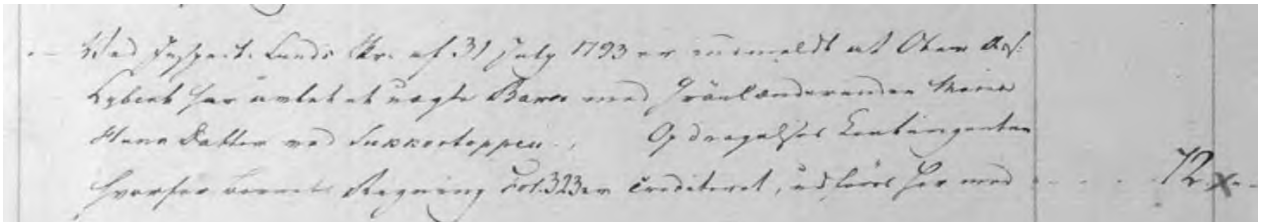 — Ved Inspect. Lunds Skr. af 31 July 1793 er anmeldt at Ober Ass.
Lybert har avlet et uægte Barn med Grönlænderinden Maria
Hans Datter ved Sukkertoppen. Opdragelses Contingenten
hvorfor Barnets Regning Fol. 323 er Crediteret, udföres her med - - - - 72 x - -